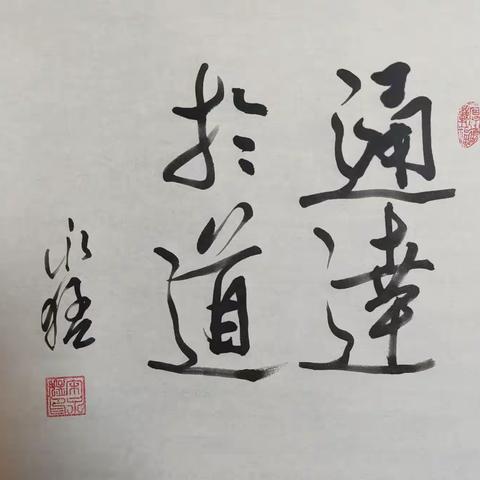 通達
於道